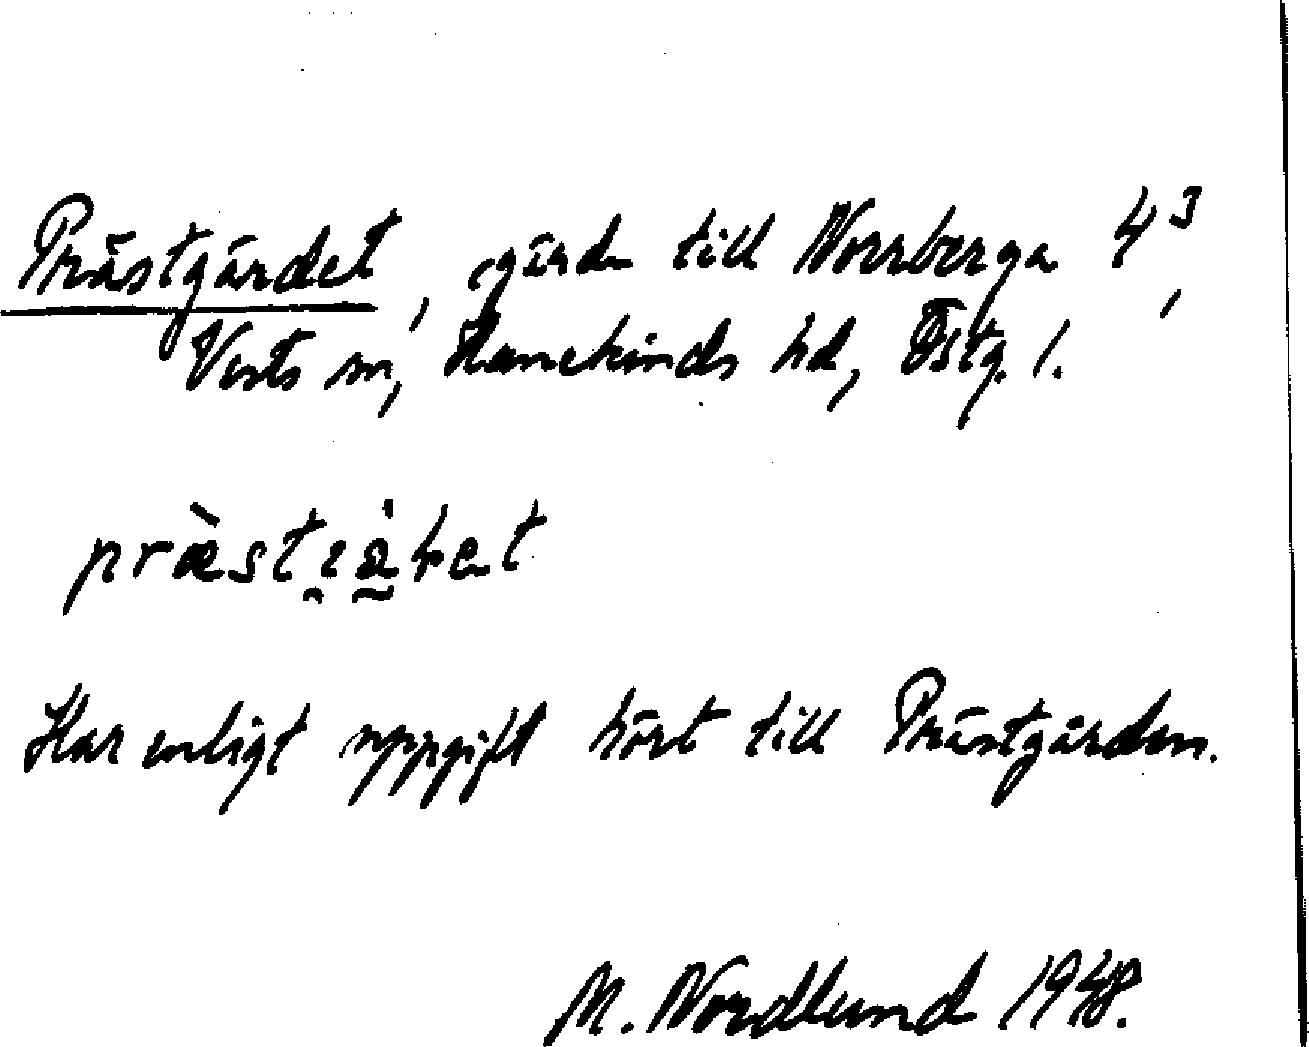 Prästgärdet, gärde till Norrberga 4³,
Vists sn, Hanekinds hd, Östg. l.
Har enligt uppgift hört till Prästgården.
M. Nordlund 1948.